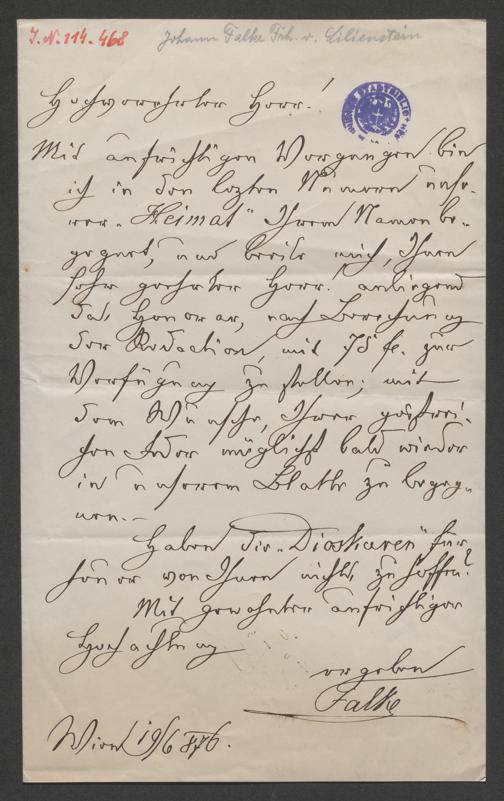 J.N. 114.468
Johann Falke Frh. v. Lilienstein
Hochverehrter Herr!
Mit aufrichtigen Vergnügen bin
ich in den lezten Numern unse-
rer "Heimat" Ihrem Namen be-
gegnet, und beeile mich, Ihnen
sehr geehrter Herr! anliegend
das Honorar, nach Berechnung
der Redaction, mit 75 fl. zur
Verfügung zu stellen; mit
dem Wunsche, Ihrer geistrei-
chen Feder möglichst bald wieder
in unserem Blatte zu begeg-
nen.-
Haben die "Dioskuren" fer-
ner von Ihnen nichts zu hoffen?
Mit gewohnter aufrichtiger
Hochachtung
ergeben
Falke
Wien 19/6 876.